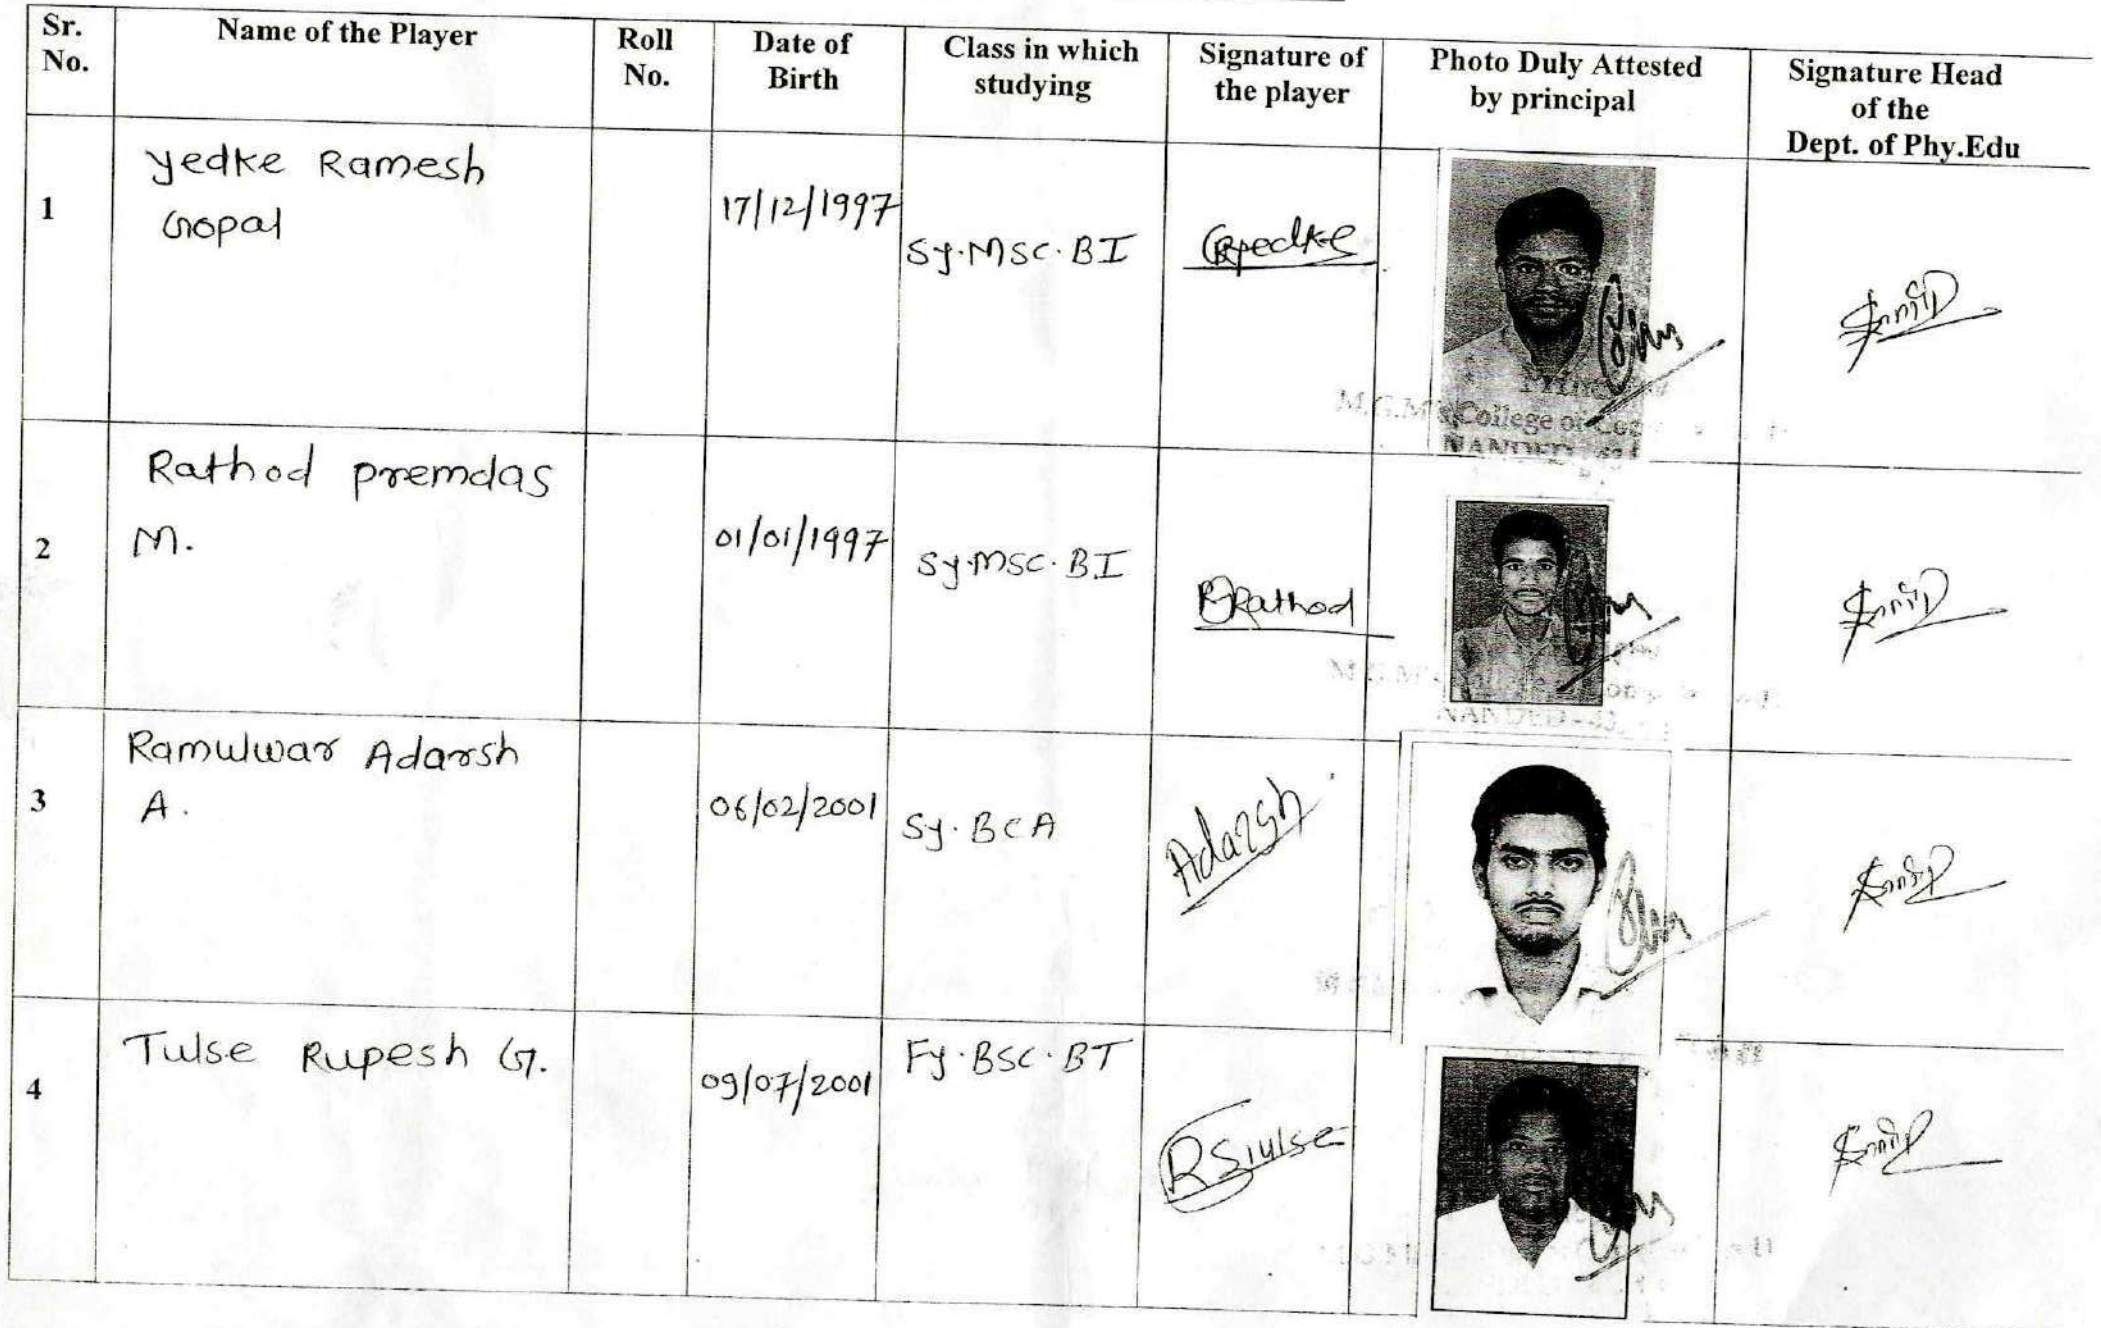 Sr. No.
Name of the Player
Roll No.
Date of Birth
Class in which studying
Signature of the player
Photo Duly Attested by principal
Signature Head of the Dept. of Phy.Edu
1
Yedke Ramesh
Gopal
17/12/1997
Sy.MSC.BI
M.G.M's College of
NANDED
2
Rathod Premdas
M.
01/01/1997
Sy.MSC.BI
Rathod
NANDED
3
Ramulwar Adarsh
A.
06/02/2001
Sy.BCA
Adarsh
4
Tulse Rupesh G.
09/07/2001
Fy.BSC.BT